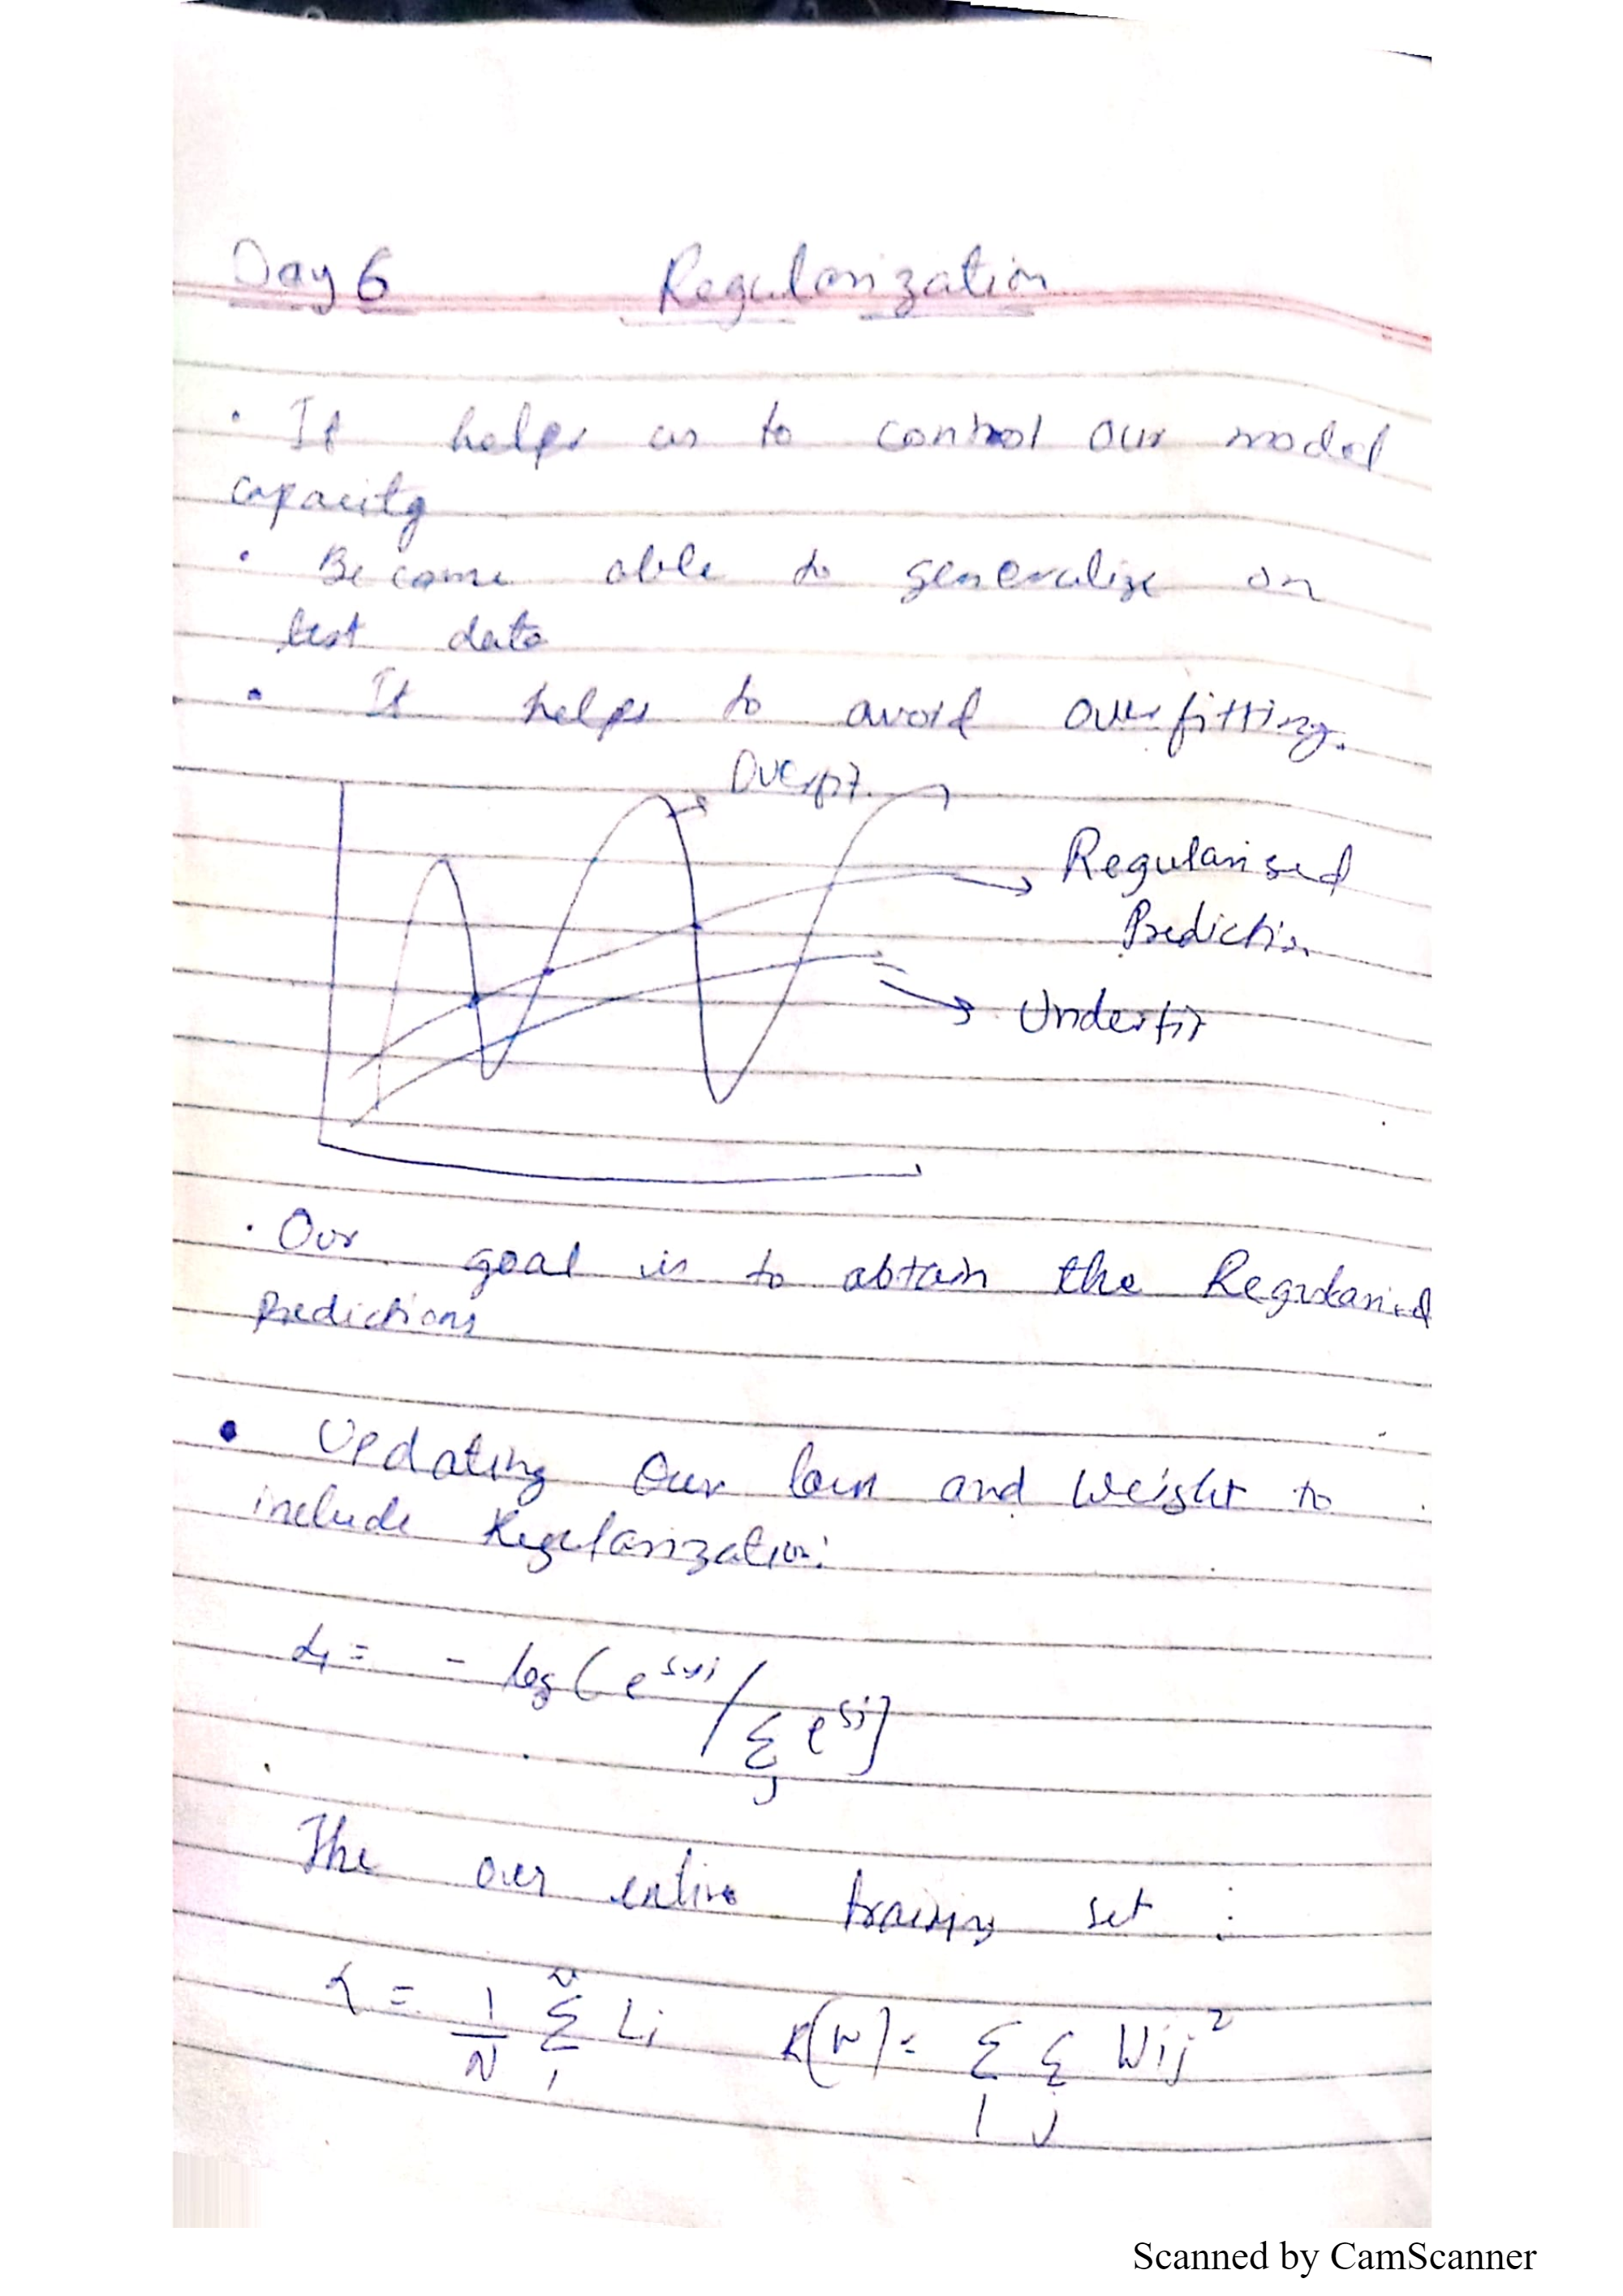 Day 6 Regularization
• It helps us to control our model
capacity
• Become able to generalize on
test data
• It helps to avoid overfitting.
Overfit
Regularised
Prediction
Underfit
• Our goal is to obtain the Regularised
Predictions
• Updating Our loss and Weight to
include Regularization:
Li = - log(e^syi / Σj e^sj)
The over entire training set :
L = 1/N Σ Li R(W) = Σi Σj Wij²
Scanned by CamScanner